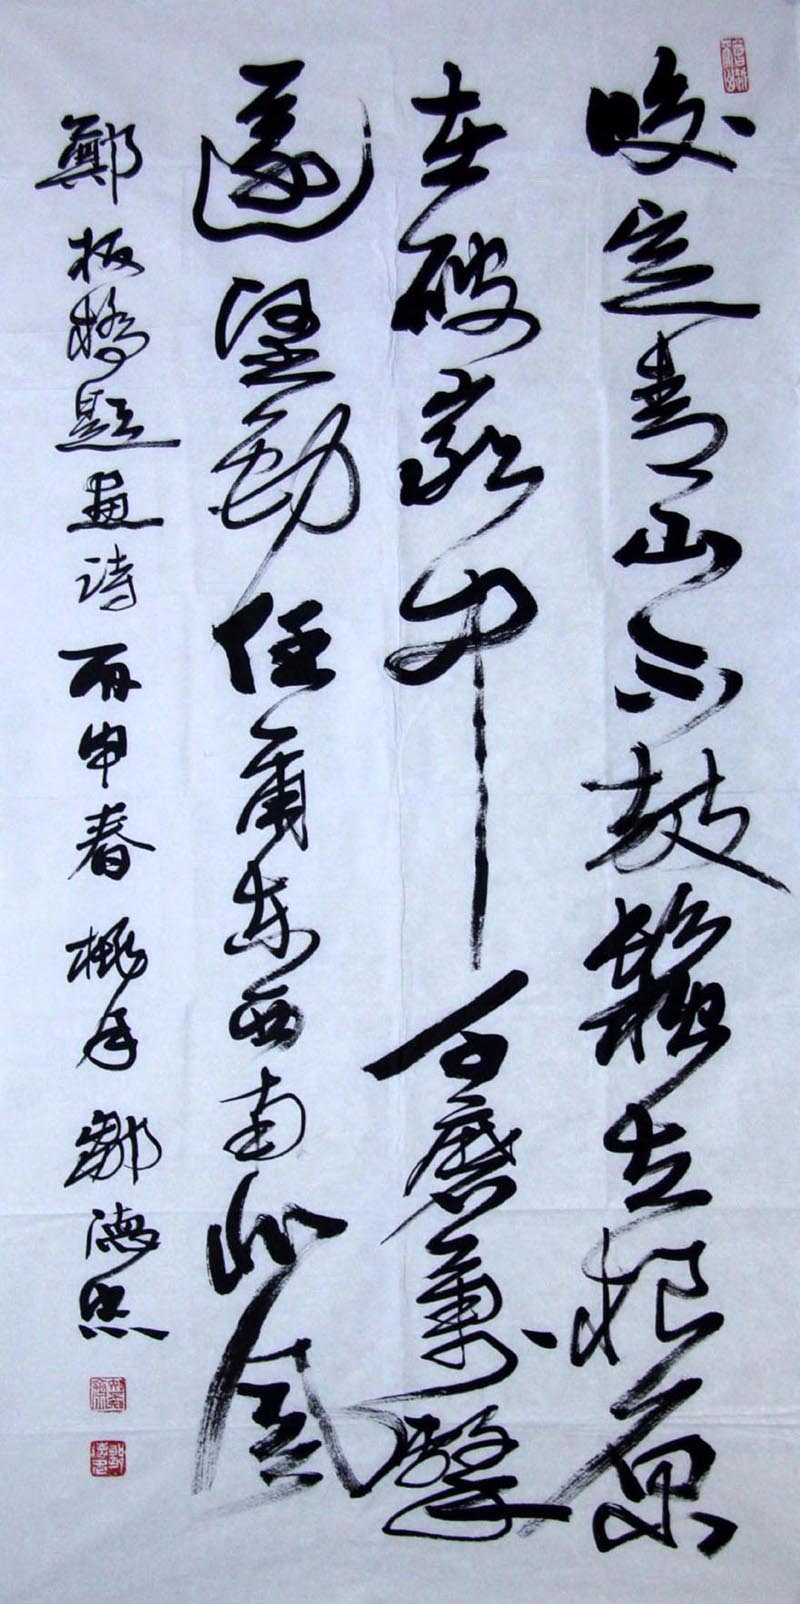 咬定青山不放鬆立根原
在破巖中千磨萬擊
還堅勁任爾東西南北風
鄭板橋題畫詩丙申春鄒德忠